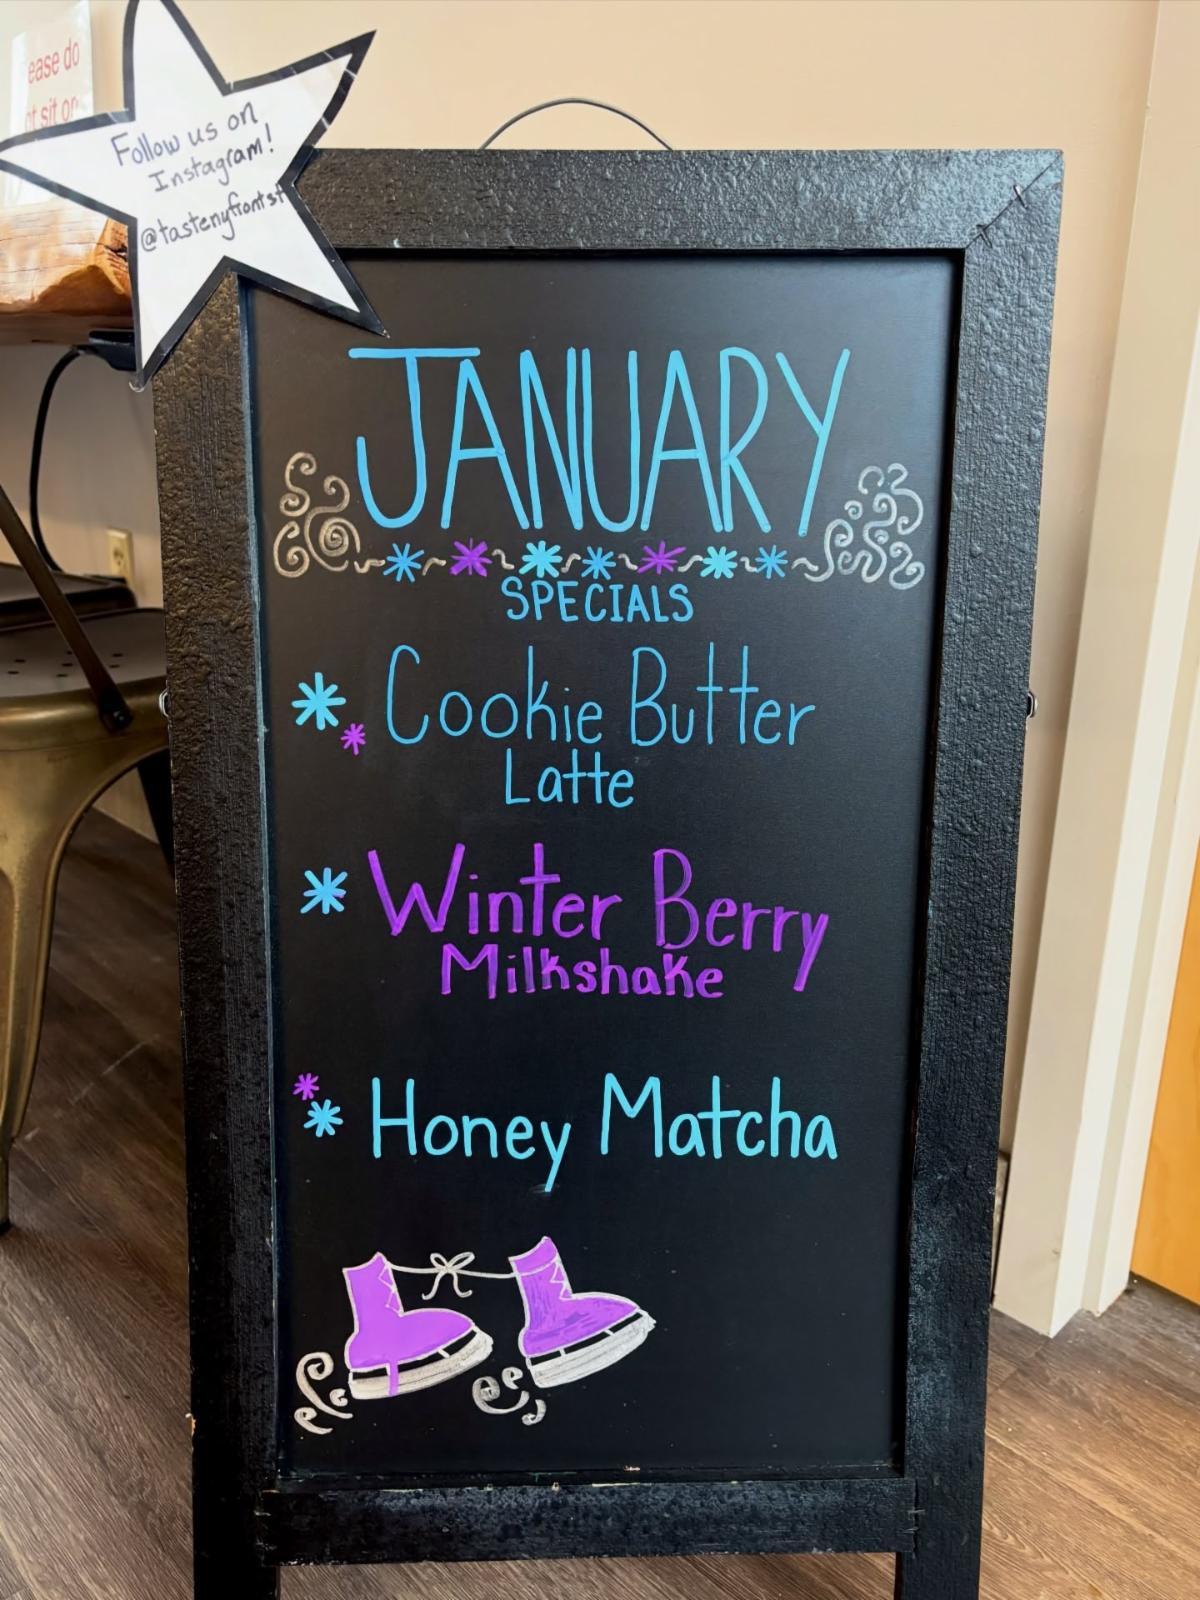 ease do
ot sit on
Follow us on
Instagram!
@tastenyfrontst
JANUARY
SPECIALS
Cookie Butter
Latte
Winter Berry
Milkshake
Honey Matcha